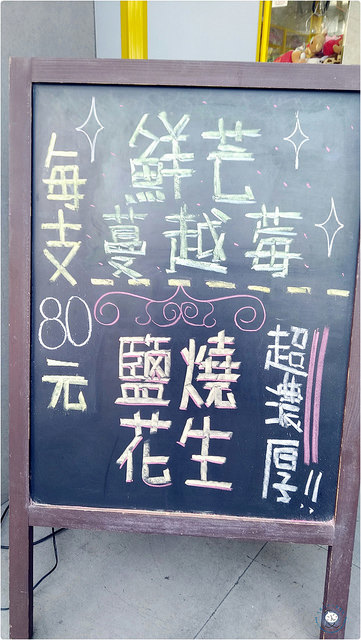 每支80元
鮮芒
蔓越莓
鹽燒
花生
超濃厚!!